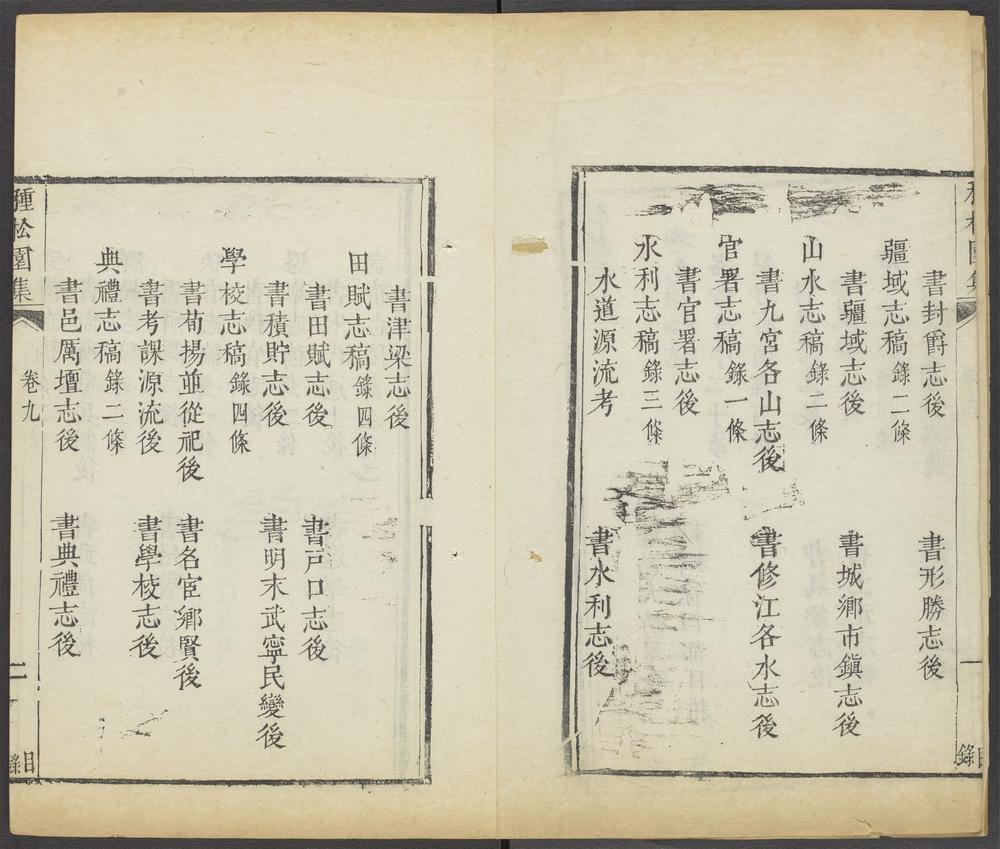 書封爵志後　書形勝志後
疆域志稿錄二條
書疆域志後　書城鄉市鎮志後
山水志稿錄二條
書九宮各山志後　書修江各水志後
官署志稿錄一條
書官署志後
水利志稿錄三條
水道源流考　書水利志後
一
目錄
書津梁志後
田賦志稿錄四條
書田賦志後　書戶口志後
書積貯志後　書明末武寧民變後
學校志稿錄四條
書荀揚並從祀後　書名宦鄉賢後
書考課源流後　書學校志後
典禮志稿錄二條
書邑厲壇志後　書典禮志後
種松園集
卷九
二
目錄